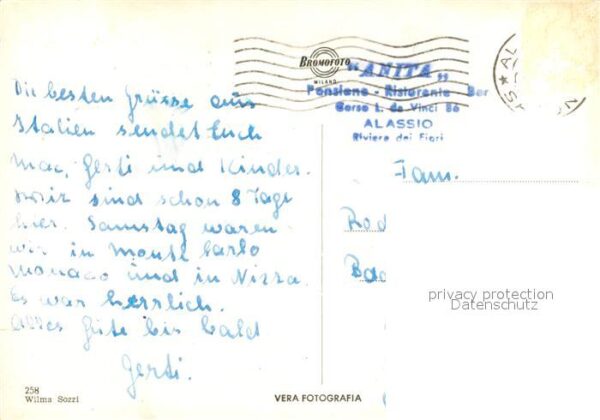 BROMOFOTO
MILANO
"ANITA"
Pensione - Ristorante - Bar
Corso L. da Vinci 86
ALASSIO
Riviera dei Fiori
Die besten Grüsse aus
Italien sendet Euch
Mac, Gerti und Kinder.
wir sind schon 8 Tage
hier. Samstag waren
wir in Monte Carlo
Monaco und in Nizza.
Es war herrlich.
alles Gute bis bald
Gerti.
Fam.
Rod
Bad
privacy protection
Datenschutz
258
Wilma Sozzi
VERA FOTOGRAFIA